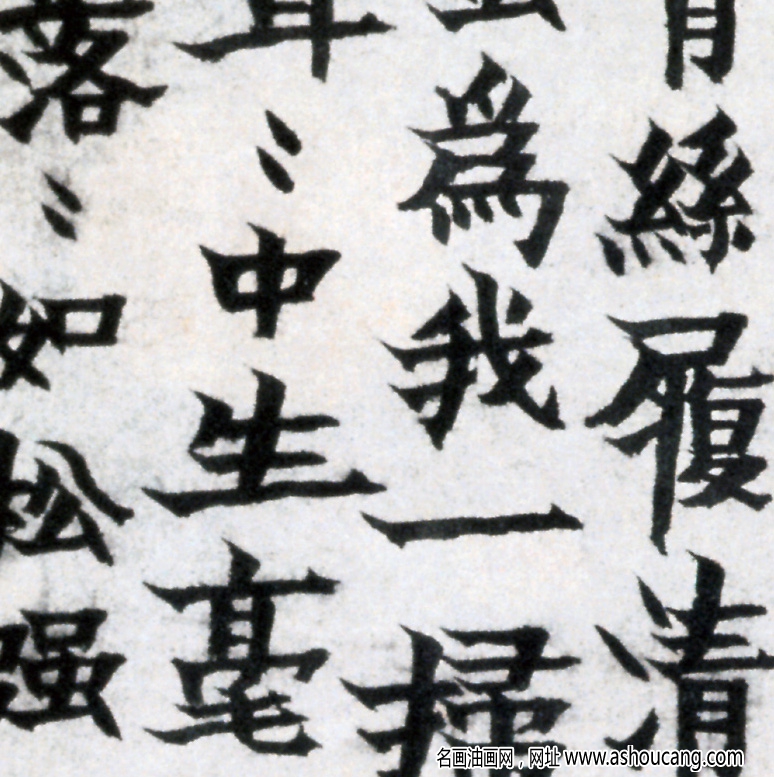 絲履清
爲我一掃
〻中生毫
落〻如松强
名画油画网，网址 www.ashoucang.com